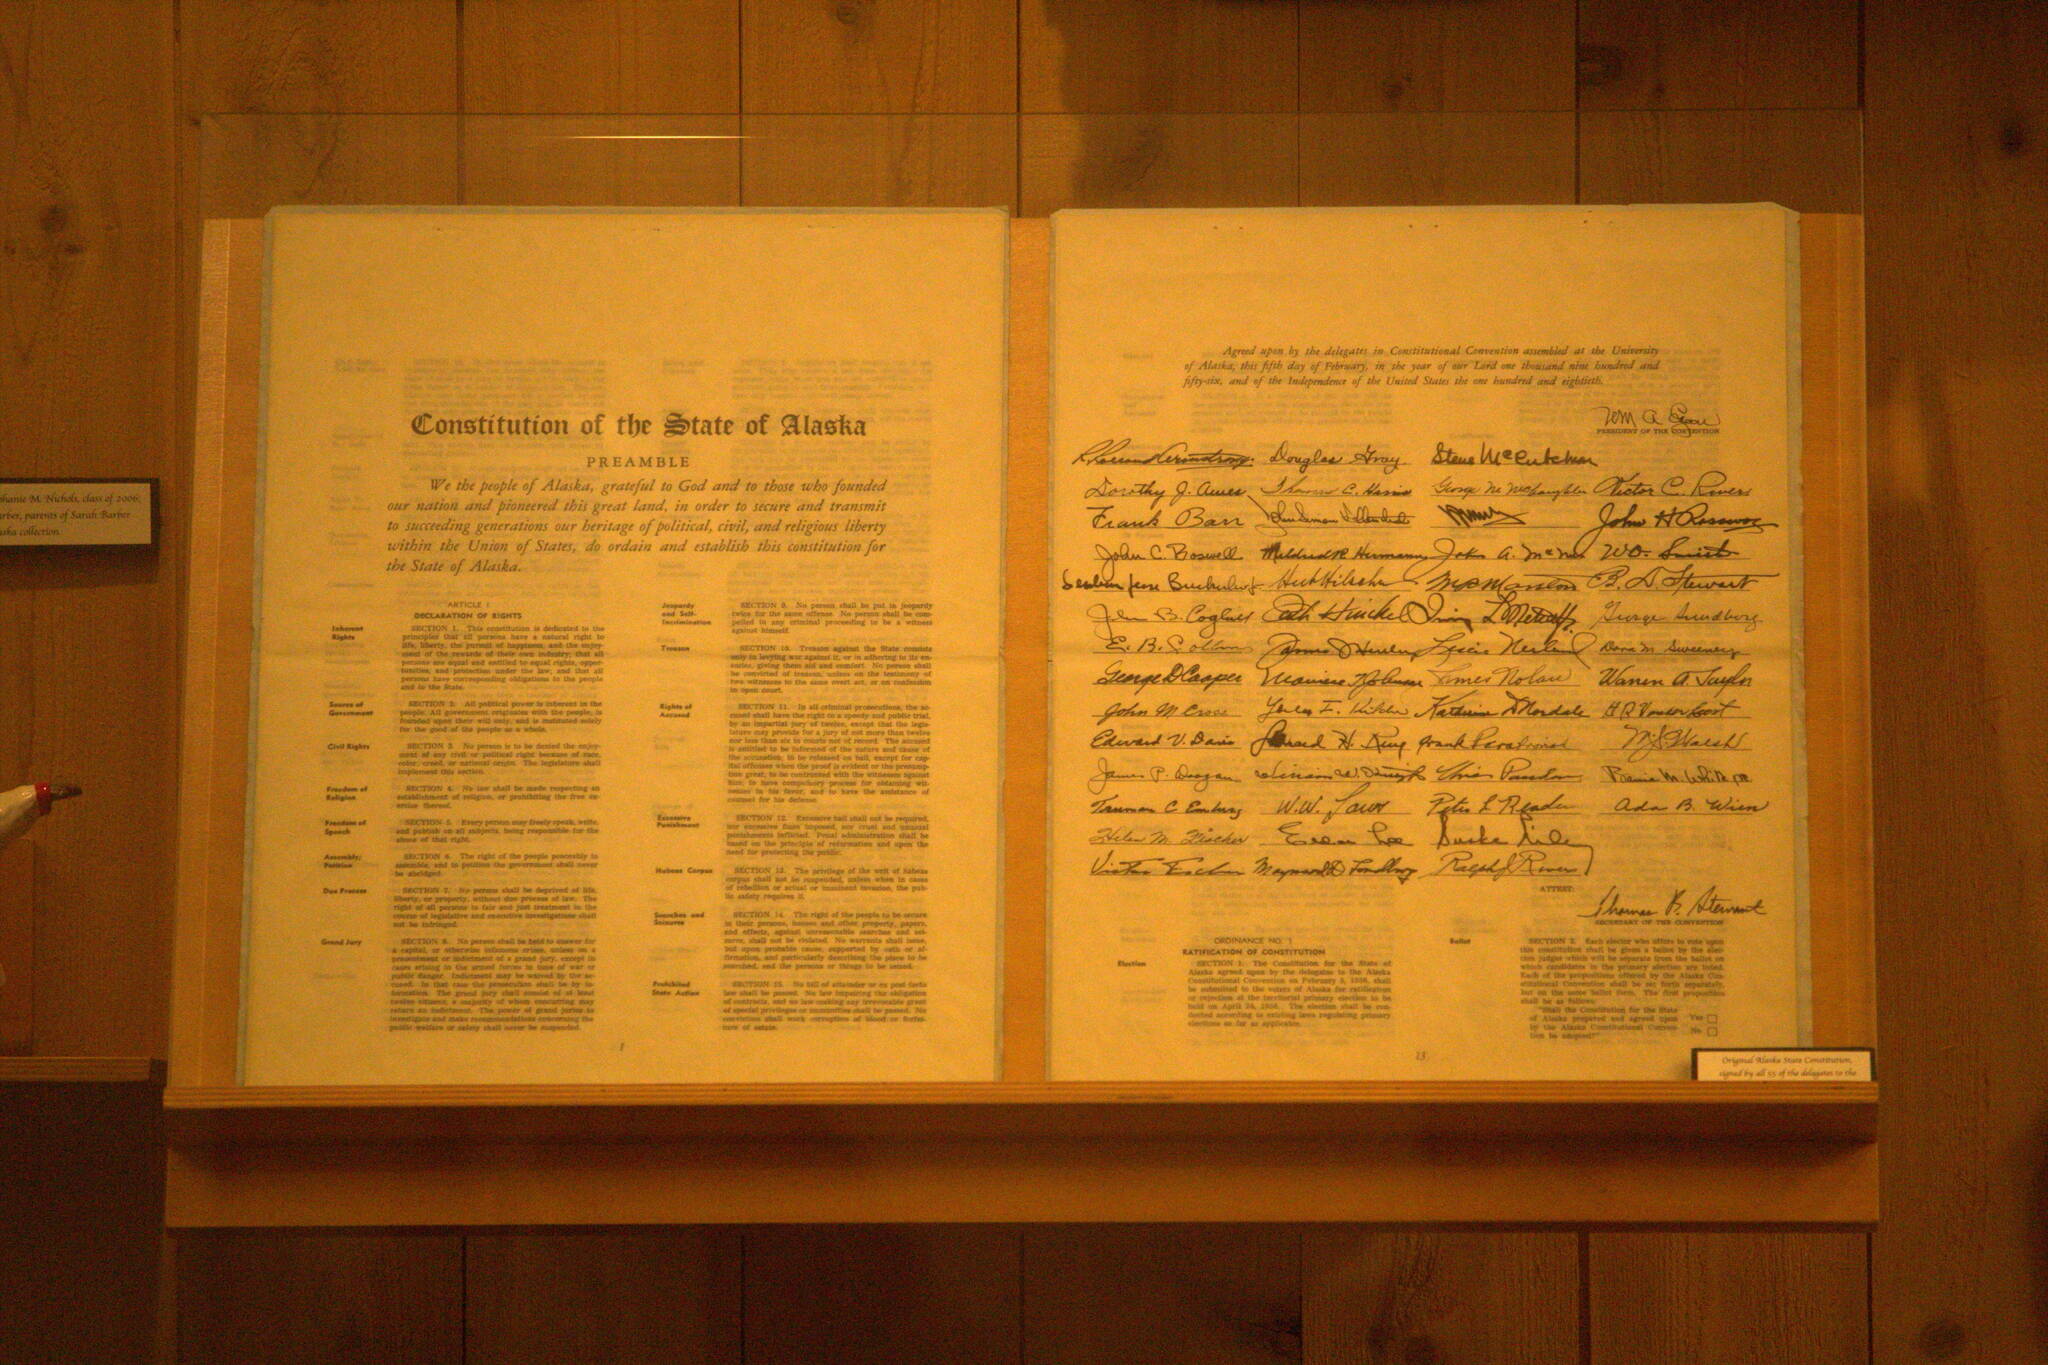 phanie M. Nichols, class of 2006;
parents of Sarah Barber
collection.
Constitution of the State of Alaska
PREAMBLE
We the people of Alaska, grateful to God and to those who founded
our nation and pioneered this great land, in order to secure and transmit
to succeeding generations our heritage of political, civil, and religious liberty
within the Union of States, do ordain and establish this constitution for
the State of Alaska.
ARTICLE I
DECLARATION OF RIGHTS
Inherent
Rights
SECTION 1. This constitution is dedicated to the
principles that all persons have a natural right to
life, liberty, the pursuit of happiness, and the enjoy-
ment of the rewards of their own industry; that all
persons are equal and entitled to equal rights, oppor-
tunities, and protection under the law; and that all
persons have corresponding obligations to the people
and to the State.
Source of
Government
SECTION 2. All political power is inherent in the
people. All government originates with the people, is
founded upon their will only, and is instituted solely
for the good of the people as a whole.
Civil Rights
SECTION 3. No person is to be denied the enjoy-
ment of any civil or political right because of race,
color, creed, or national origin. The legislature shall
implement this section.
Freedom of
Religion
SECTION 4. No law shall be made respecting an
establishment of religion, or prohibiting the free ex-
ercise thereof.
Freedom of
Speech
SECTION 5. Every person may freely speak, write,
and publish on all subjects, being responsible for the
abuse of that right.
Assembly;
Petition
SECTION 6. The right of the people peaceably to
assemble, and to petition the government shall never
be abridged.
Due Process
SECTION 7. No person shall be deprived of life,
liberty, or property, without due process of law. The
right of all persons to fair and just treatment in the
course of legislative and executive investigations shall
not be infringed.
Grand Jury
SECTION 8. No person shall be held to answer for
a capital, or otherwise infamous crime, unless on a
presentment or indictment of a grand jury, except in
cases arising in the armed forces in time of war or
public danger. Indictment may be waived by the ac-
cused. In that case the prosecution shall be by in-
formation. The grand jury shall consist of at least
twelve citizens, a majority of whom concurring may
return an indictment. The power of grand juries to
investigate and make recommendations concerning the
public welfare or safety shall never be suspended.
Jeopardy
and Self-
Incrimination
SECTION 9. No person shall be put in jeopardy
twice for the same offense. No person shall be com-
pelled in any criminal proceeding to be a witness
against himself.
Treason
SECTION 10. Treason against the State consists
only in levying war against it, or in adhering to its en-
emies, giving them aid and comfort. No person shall
be convicted of treason, unless on the testimony of
two witnesses to the same overt act, or on confession
in open court.
Rights of
Accused
SECTION 11. In all criminal prosecutions, the ac-
cused shall have the right to a speedy and public trial,
by an impartial jury of twelve, except that the legis-
lature may provide for a jury of not more than twelve
nor less than six in courts not of record. The accused
is entitled to be informed of the nature and cause of
the accusation; to be released on bail, except for cap-
ital offenses when the proof is evident or the presump-
tion great; to be confronted with the witnesses against
him; to have compulsory process for obtaining wit-
nesses in his favor, and to have the assistance of
counsel for his defense.
Excessive
Punishment
SECTION 12. Excessive bail shall not be required,
nor excessive fines imposed, nor cruel and unusual
punishments inflicted. Penal administration shall be
based on the principle of reformation and upon the
need for protecting the public.
Habeas Corpus
SECTION 13. The privilege of the writ of habeas
corpus shall not be suspended, unless when in cases
of rebellion or actual or imminent invasion, the pub-
lic safety requires it.
Searches and
Seizures
SECTION 14. The right of the people to be secure
in their persons, houses and other property, papers,
and effects, against unreasonable searches and sei-
zures, shall not be violated. No warrants shall issue,
but upon probable cause, supported by oath or af-
firmation, and particularly describing the place to be
searched, and the persons or things to be seized.
Prohibited
State Action
SECTION 15. No bill of attainder or ex post facto
law shall be passed. No law impairing the obligation
of contracts, and no law making any irrevocable grant
of special privileges or immunities shall be passed. No
conviction shall work corruption of blood or forfei-
ture of estate.
1
Agreed upon by the delegates in Constitutional Convention assembled at the University
of Alaska, this fifth day of February, in the year of our Lord one thousand nine hundred and
fifty-six, and of the Independence of the United States the one hundred and eightieth.
Wm A Egan
PRESIDENT OF THE CONVENTION
Armstrong Douglas Gray Steve McCutcheon
Dorothy J. Awes Thomas C. Harris George M. McLaughlin Victor C. Rivers
Frank Barr John H Rosswog
John C. Boswell Mildred R. Hermann John A. McNees W O. Smith
Herb Hilscher B. D. Stewart
John B. Coghill Jack Hinckel Irwin L Metcalf George Sundborg
E. B. Collins James J Hurley Leslie Nerland Dora M. Sweeney
George D Cooper Maurice T Johnson James Nolan Warren A. Taylor
John M Cross Yule F. Kilcher Katherine D Nordale H R VanderLeest
Edward V. Davis Leonard H. King Frank Peratrovich M. J. Walsh
James P. Doogan Chris Poulsen
Truman C. Emberg W. W. Laws Peter L Reader Ada B. Wien
Helen M. Fischer Eldor Lee Burke Riley
Victor Fischer Maynard D Londborg Ralph J Rivers
ATTEST:
Thomas B. Stewart
SECRETARY OF THE CONVENTION
ORDINANCE NO. 1
RATIFICATION OF CONSTITUTION
Election
SECTION 1. The Constitution for the State of
Alaska agreed upon by the delegates to the Alaska
Constitutional Convention on February 5, 1956, shall
be submitted to the voters of Alaska for ratification
or rejection at the territorial primary election to be
held on April 24, 1956. The election shall be con-
ducted according to existing laws regulating primary
elections so far as applicable.
Ballot
SECTION 2. Each elector who offers to vote upon
this constitution shall be given a ballot by the elec-
tion judges which will be separate from the ballot on
which candidates in the primary election are listed.
Each of the propositions offered by the Alaska Con-
stitutional Convention shall be set forth separately,
but on the same ballot form. The first proposition
shall be as follows:
"Shall the Constitution for the State
of Alaska prepared and agreed upon
by the Alaska Constitutional Conven-
tion be adopted?"
Yes
No
13
Original Alaska State Constitution,
signed by all 55 of the delegates to the